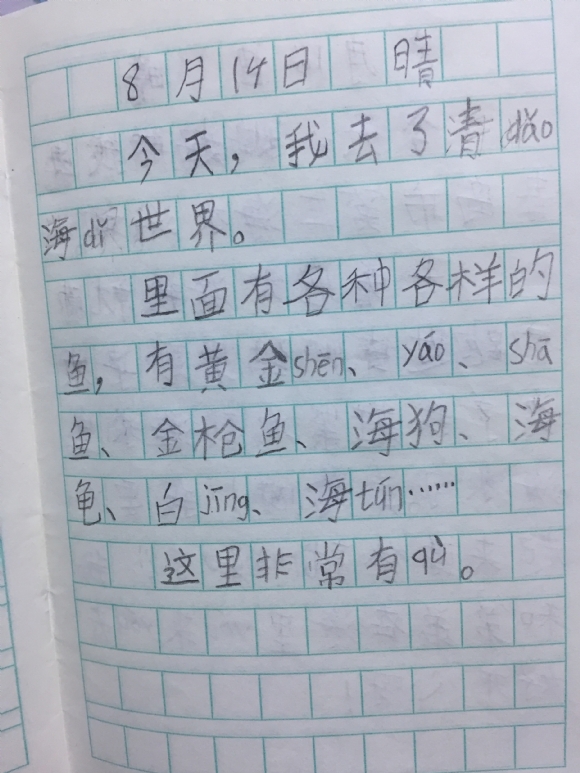 8月14日 晴
今天，我去了青dǎo
海dǐ世界。
里面有各种各样的
鱼，有黄金shēn、yáo、shā
鱼、金枪鱼、海狗、海
龟、白jīng、海tún……
这里非常有qù。